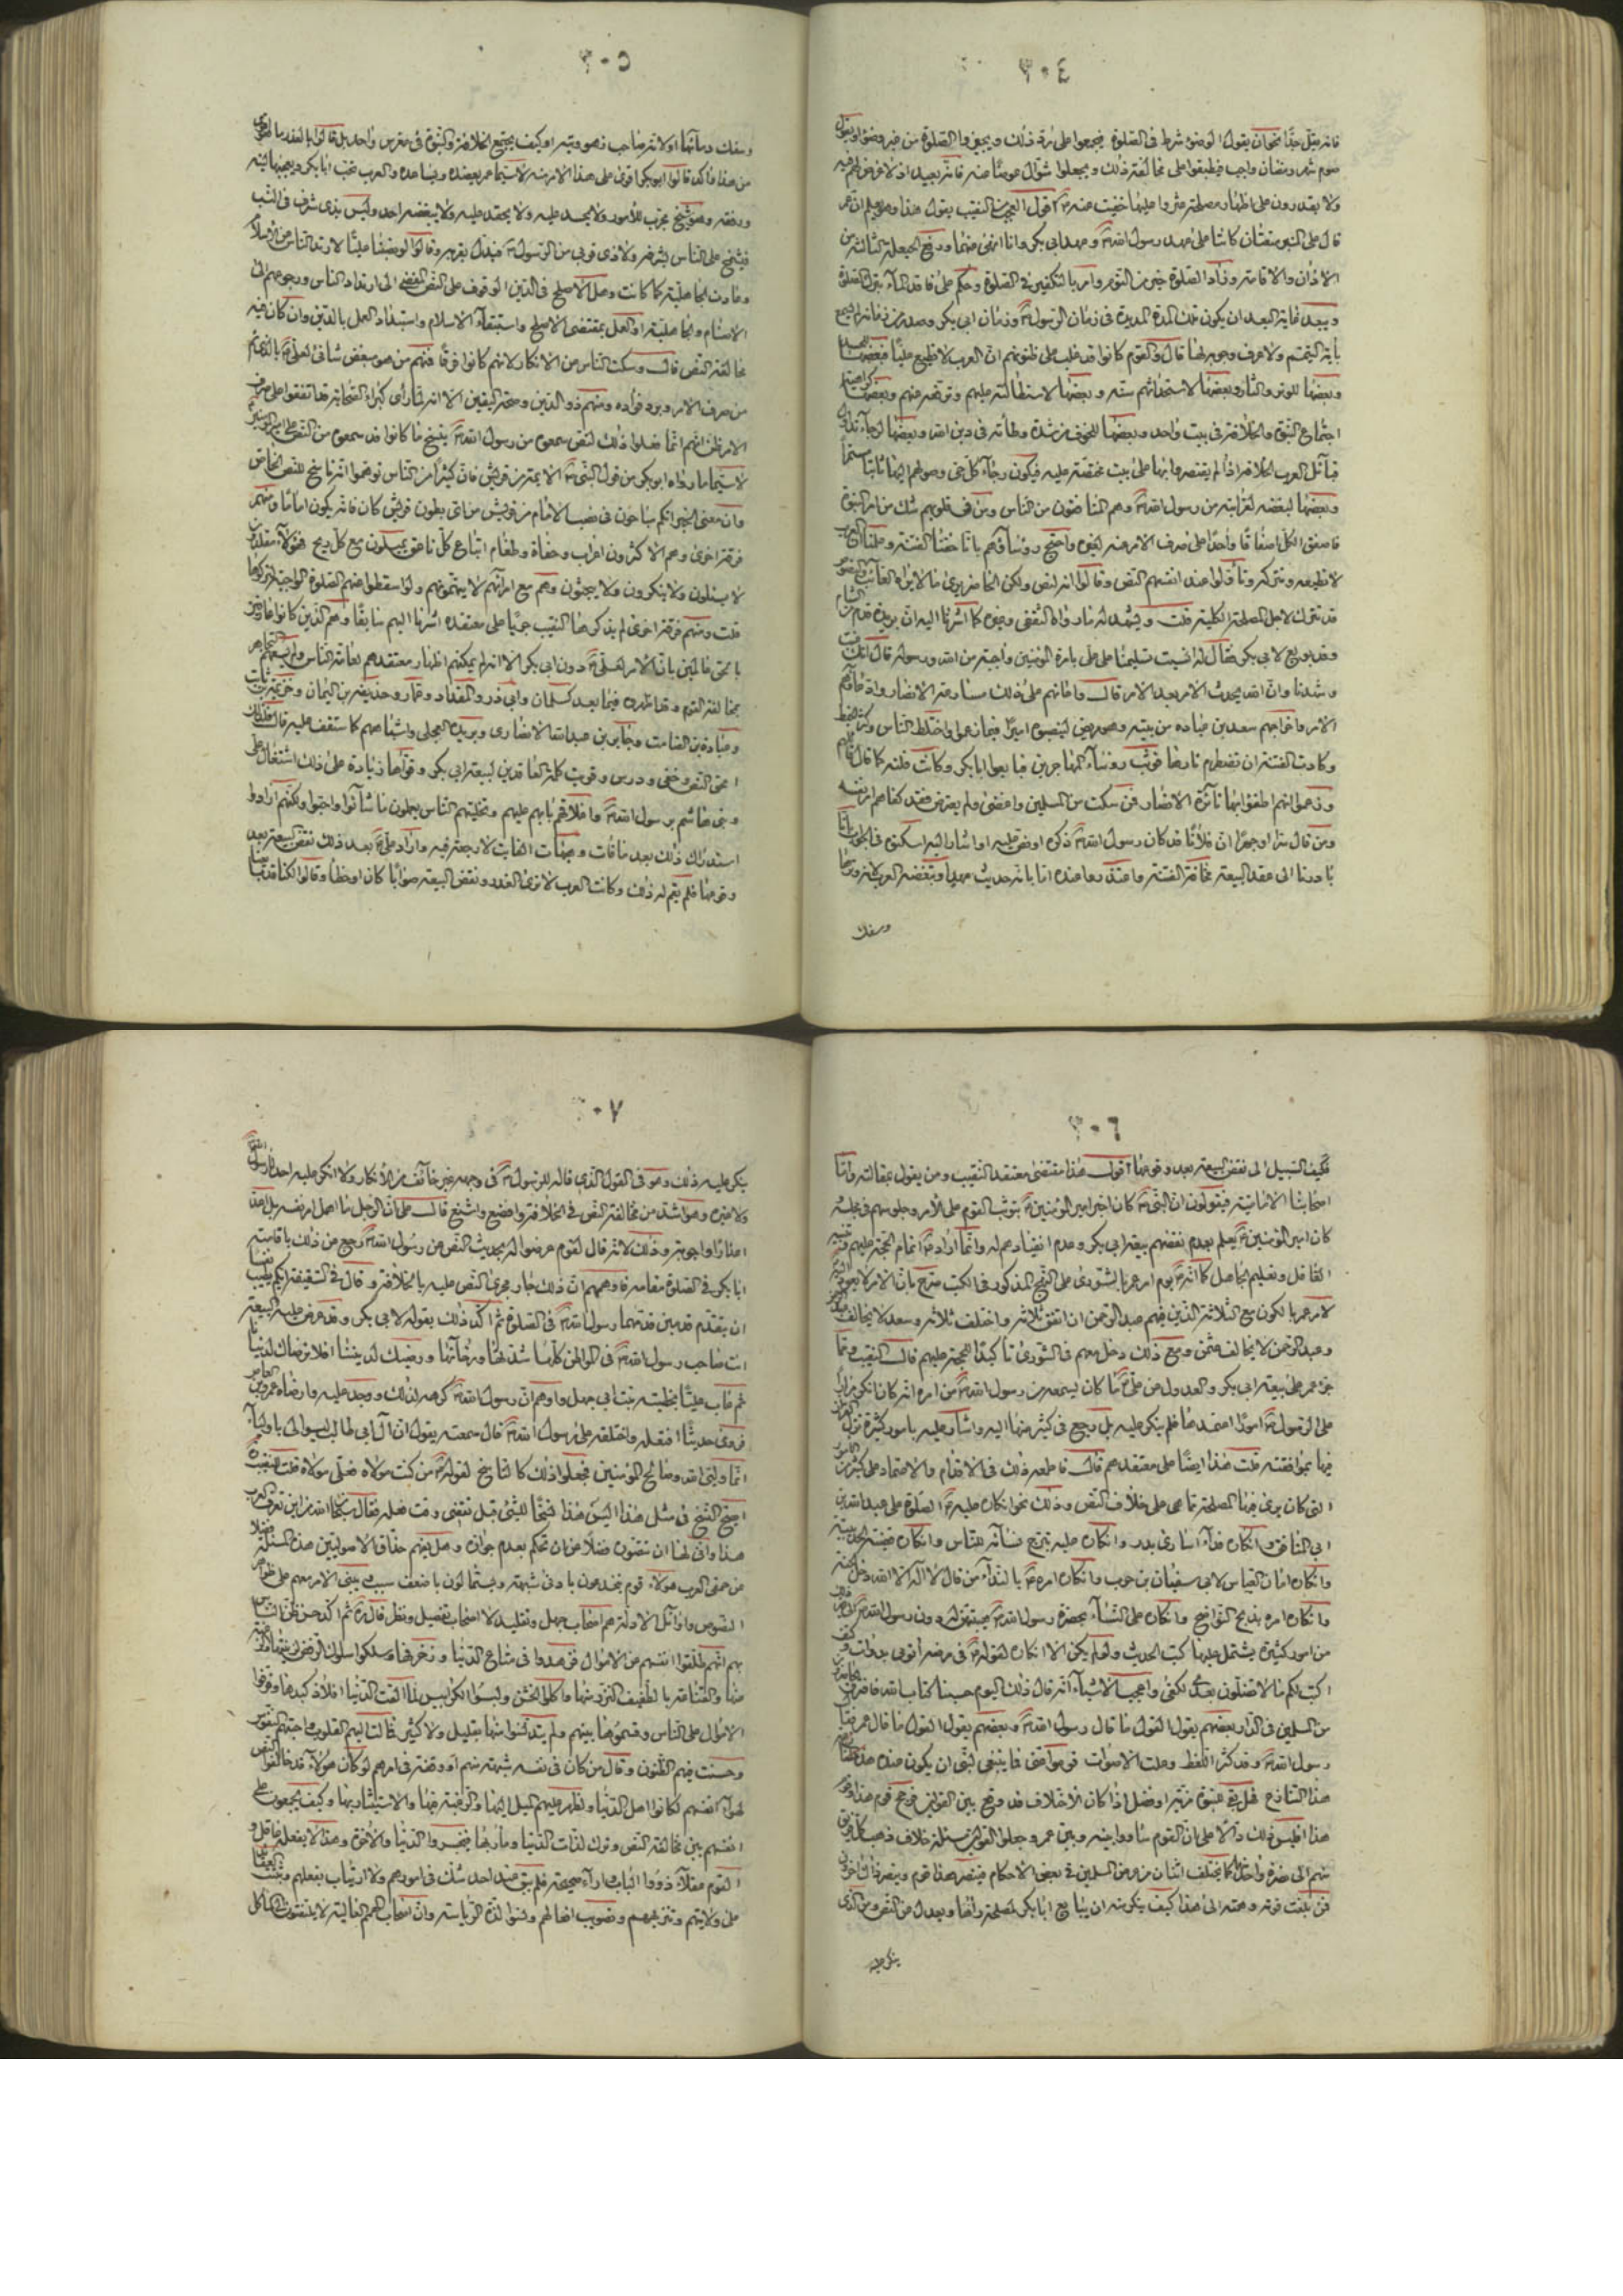 ٣٠٤
فانه مثل حدّا نحو ان يقول الوضوء شرط فى الصلوة فيجمعوا على ردّ ذلك ويجيزوا الصلوة من غير وضوء او يقول
صوم شهر رمضان واجب فيطبقوا على مخالفة ذلك ويجعلوا شوّال عوضا عنه فانه بعيد اذ لا غرض لهم فيه
ولا يقدرون على اظهار مصلحة عثروا عليها خفيت عنه اقول العجب من النقيب يقول هذا وهو يعلم ان عمر
قال على المنبر متعتان كانتا على عهد رسول الله وعهد ابى بكر وانا انهى عنهما
الاذان والاقامة وزاد الصلوة خير من النوم وامر بالتكفير فى الصلوة وحكم على فاقد الماء بترك الصلوة
ويبعد غاية البعد ان يكون تلك المدة المديدة فى زمان الرسول وزمان ابى بكر
باية التيمّم ولا عرف وجوبها قال والقوم كانوا قد غلب على ظنونهم ان العرب لا تطيع عليّا فبعضها للحسد
وبعضها للوتر والثار وبعضها لاستحداثهم سنّه وبعضها لاستطالته عليهم وترفعه عنهم وبعضها كراهية
اجتماع النبوّة والخلافة فى بيت واحد وبعضها للخوف من شدة وطأته فى دين الله وبعضها لرجاء تداول
قبائل العرب الخلافة اذا لم يقتصر بها على بيت مخصّصة عليه فيكون رجاء كلّ حىّ وصولهم اليها ثابتا مستمرّا
وبعضها لبغضه لقرابته من رسول الله وهم المنافقون من الناس ومن فى قلوبهم شك من امر النبوّة
فاصفق الكلّ اصفاقا واحدا على صرف الامر عنه لغيره واحتج رؤساؤهم بانا خفنا الفتنة وعلمنا ان العرب
لا تطيعه وتتركه وتأوّلوا عند انفسهم النصّ وقالوا انه لنصّ ولكن الحاضر يرى ما لا يراه الغائب والغائب
قد يترك لاجل المصلحة الكلية قلت ويشهد له ما رواه الثقفى وغيره كما اشرنا اليه ان بريدة قدم من الشام
وقد بويع لابى بكر فقال له انسيت تسليمنا على علىّ بامرة المؤمنين واجبة من الله ورسوله قال انك غبت
وشهدنا وان الله يحدث الامر بعد الامر قال واعانهم على ذلك مسارعة الانصار وادّعاؤهم
الامر واخراجهم سعد بن عبادة من بيته وهو مريض لينصبوه اميرا فيما زعموا واختلط الناس وكثر الخبط
وكادت الفتنة ان تضطرم نارها فوثب رؤساء المهاجرين فبايعوا ابا بكر وكانت فلتة كما قال قائلهم
وزعموا انهم اطفؤا بها نائرة الانصار فمن سكت من المسلمين واغضى ولم يعترض فقد كفاهم امر نفسه
ومن قال سرّا او جهرا ان فلانا قد كان رسول الله ذكره او نصّ عليه او اشار اليه اسكتوه فى الجواب بانا
بادرنا الى عقد البيعة مخافة الفتنة واعتذروا عنده اما بانه حديث السنّ او تبغضه العرب لانه وترها
وسفك
٣٠٥
وسفك دماءها او لانه صاحب زهو وتيه او كيف يجتمع الخلافة والنبوّة فى مغرس واحد بل قالوا بالعذر ما هو اقوى
من هذا واكد قالوا ابو بكر اقوى على هذا الامر منه لا سيّما عمر يعضده ويساعده والعرب تحب ابا بكر ويعجبها لينه
ورفقه وهو شيخ مجرّب للامور ولا يحسد عليه ولا يحقد عليه ولا يبغضه احد وليس بذى شرف فى النسب
فيشمخ على الناس بشرفه ولا ذى قربى من الرسول فيدلّ بقربه وقالوا لو نصبنا عليّا لارتد الناس عن الاسلام
وعادت الجاهلية كما كانت وهل الاصلح فى الدين الوقوف على النص المفضى الى ارتداد الناس ورجوعهم الى
الاصنام والجاهلية او العمل بمقتضى الاصلح واستبقاء الاسلام واستدامة العمل بالدين وان كان فيه
مخالفة النصّ قال وسكت الناس عن الانكار لانهم كانوا فرقا فمنهم من هو مبغض شانئ لعلىّ
من صرف الامر وبرد فؤاده ومنهم ذو الدين وصحة اليقين الا انه لما رأى كبراء الصحابة قد اتفقوا على صرف
الامر ظن انهم انما فعلوا ذلك لنص سمعوه من رسول الله ينسخ ما كانوا قد سمعوه من النص على امير المؤمنين
لا سيّما ما رواه ابو بكر من قول النبى الائمة من قريش فان كثيرا من الناس توهموا انه ناسخ للنص الخاص
وان معنى الخبر انكم مباحون فى نصب الامام من قريش من اى بطون قريش كان فانه يكون اماما ومنهم
فرقة اخرى وهم الاكثرون اعراب وجفاة وطغام اتباع كلّ ناعق يميلون مع كلّ ريح فهؤلاء مقلدون
لا يسئلون ولا ينكرون ولا يبحثون وهم مع امرائهم لا يتهمونهم ولو اسقطوا عنهم الصلوة الواجبة لتركوها
قلت ومنهم فرقة اخرى لم يذكرها النقيب جريا على معتقده اشرنا اليهم سابقا وهم الذين كانوا عارفين
بالحق قائلين بان الامر لعلىّ دون ابى بكر الا انه لم يمكنهم اظهار معتقدهم لعامة الناس ولم يسعهم التجاهر
بمخالفة القوم وقد اظهروه فيما بعد كسلمان وابى ذر والمقداد وعمّار وحذيفة بن اليمان وخزيمة بن ثابت
وعبادة بن الصامت وجابر بن عبد الله الانصارى وبريدة العجلى واشباههم كما ستقف عليه قال فلذلك
امحق النص وخفى ودرس وقويت كلمة العاقدين لبيعة ابى بكر وقوّاها زيادة على ذلك اشتغال علىّ
وبنى هاشم برسول الله واغلاقهم بابهم عليهم وتخليتهم الناس يعملون ما شاؤا واحبوا ولكنهم ارادوا
استدراك ذلك بعد ما فات وهيهات الفايت لا رجعة فيه واراد علىّ بعد ذلك نقض البيعة بعد
وقوعها فلم يتم له ذلك وكانت العرب لا ترى الغدر ونقض البيعة صوابا كان او خطأ وقالوا لكنا قد بايعنا
٣٠٦
فكيف السبيل الى نقض البيعة بعد وقوعها اقول هذا مقتضى معتقد النقيب ومن يقول بمقالته وامّا
اصحابنا الامامية فيقولون ان النبى كان اخبر امير المؤمنين بتوثب القوم على الامر وجلوسهم فى مجلسه
كان امير المؤمنين يعلم بعدم نقضهم بيعة ابى بكر وعدم انقيادهم له وانما اراد اتمام الحجة عليهم وتنبيه
الغافل وتعليم الجاهل كما انه يوم امر عمر بالشورى على النهج المذكور فى الكتب صرح بان الامر لا يعود اليه
لامر عمر بالكون مع الثلاثة الذين فيهم عبد الرحمن ان اتفق ثلاثة واختلف ثلاثة وسعد لا يخالف
وعبد الرحمن لا يخالف عثمن ومع ذلك دخل معهم فى الشورى تاكيدا للحجة عليهم قال النقيب ومما
جرّء عمر على بيعة ابى بكر والعدول عن علىّ ما كان يسمعه من رسول الله من امره انه كان انكر مرارا
على الرسول امورا اعتمدها فلم ينكر عليه بل رجع فى كثير منها اليه واشار عليه بامور كثيرة نزل القران
فيها بموافقته قلت هذا ايضا على معتقدهم قال فاطمعه ذلك فى الاقدام والاعتماد على كثير من الامور
التى كان يرى فيها المصلحة مما هى على خلاف النص وذلك نحو انكاره عليه الصلوة على عبد الله بن
ابى المنافق وانكاره فداء اسارى بدر وانكاره عليه تبرج نسائه للناس وانكاره قضية الحديبية
وانكاره امان العباس لابى سفيان بن حرب وانكاره امره بالنداء من قال لا اله الا الله دخل الجنة
وانكاره امره بذبح النواضح وانكاره على النساء بحضرة رسول الله هيبتهن له دون رسول الله
من امور كثيرة يشتمل عليها كتب الحديث ولو لم يكن الا انكاره لقوله فى مرضه ائتونى بدواة وكتف
اكتب لكم ما لا تضلون بعدى لكفى واعجب الاشياء انه قال ذلك اليوم حسبنا كتاب الله فافترق
من المسلمين فى الدار بعضهم يقول القول ما قال رسول الله وبعضهم يقول القول ما قال عمر فقال
رسول الله وقد كثر اللغط وعلت الاصوات قوموا عنى فما ينبغى لنبى ان يكون عنده هذا
هذا التنازع فهل بقى للنبوة مزيّة او فضل اذا كان الاختلاف قد وقع بين القولين فرجح قوم هذا وقوم
هذا افليس ذلك دالا على ان القوم ساووا بينه وبين عمر وجعلوا القولين مسئلة خلاف ذهب كل فريق
منهم الى نصرة واحد كما يختلف اثنان من عرض المسلمين فى بعض الاحكام فينصر هذا قوم وينصر ذاك اخرون
فمن بلغت قوته وهمّته الى هذا كيف ينكر منه ان يبايع ابا بكر لمصلحة راها ويعدل عن النص ومن الذى
ينكر عليه
٣٠٧
ينكر عليه ذلك وهو فى القول الذى قاله للرسول فى وجهه غير خائف من الانكار ولا انكر عليه احد لا رسول الله
ولا غيره وهو اشد من مخالفة النص فى الخلافة وافضع واشنع قال على ان الرجل ما اهمل امر نفسه بل اعدّ
اعذارا واجوبة وذلك لانه قال لقوم عرضوا له بحديث النص ان رسول الله رجع عن ذلك باقامته
ابا بكر فى الصلوة مقامه واوهمهم ان ذلك جار مجرى النص عليه بالخلافة وقال فى السقيفة ايكم يطيب نفسا
ان يتقدّم قدمين قدّمهما رسول الله فى الصلوة ثم اكّد ذلك بقوله لابى بكر وقد عرض عليه البيعة
انت صاحب رسول الله فى المواطن كلها شدّتها ورخائها ورضيك لديننا افلا نرضاك لدنيانا
ثم عاب عليّا بخطبته بنت ابى جهل واوهم ان رسول الله كرهه لذلك ووجد عليه وارضاه عمرو بن العاص
فروى حديثا افتعله واختلقه على رسول الله قال سمعته يقول ان ال ابى طالب ليسوا لى باولياء
انما وليى الله وصالح المؤمنين فجعلوا ذلك كالناسخ لقوله من كنت مولاه فعلىّ مولاه قلت للنقيب
ايصح النسخ فى مثل هذا اليس هذا نسخا للشئ قبل تقضّى وقت فعله فقال سبحان الله من اين تعرف العرب
هذا وانى لها ان تتصوره فضلا عن ان تحكم بعدم جوازه وهل يفهم حذاق الاصوليين هذه المسئلة فضلا
عن حمقى العرب هؤلاء قوم ينخدعون بادنى شبهة ويستمالون باضعف سبب ويبنى الامر معهم على ظواهر
النصوص واوائل الادلة وهم اصحاب جهل وتقليد لا اصحاب تفضيل ونظر قال ثم اكد حسن ظن الناس
بهم انهم طلّقوا انفسهم عن الاموال فزهدوا فى متاع الدنيا وزخرفها وسلكوا مسلك الرفض لزينتها والرغبة
عنها والقناعة بالطفيف النزر منها واكلوا الخشن ولبسوا الكرابيس ولما القت الدنيا افلاذ كبدها وفرّقوا
الاموال على الناس وقسّموها بينهم ولم يتدنّسوا منها بقليل ولا كثير فمالت اليهم القلوب واحبتهم النفوس
وحسنت فيهم الظنون وقال من كان فى نفسه شبهة منهم او وقفة فى امرهم لو كان هؤلاء قد خالفوا النص
لهوى انفسهم لكانوا اهل الدنيا ولظهر عليهم الميل اليها والرغبة فيها والاستيثار بها وكيف يجمعون على
انفسهم بين مخالفة النص وترك لذات الدنيا ومآربها فيخسروا الدنيا والاخرة وهذا لا يفعله عاقل و
القوم عقلاء ذووا الباب واراء صحيحة فلم يبق عند احد شك فى امورهم ولا ارتياب بفعلهم وثبت العقائد
على ولايتهم وتنزيههم وتصويب افعالهم ونسوا لذة الرياسة وان اصحاب الهمم العالية لا يلتفتون الى المأكل